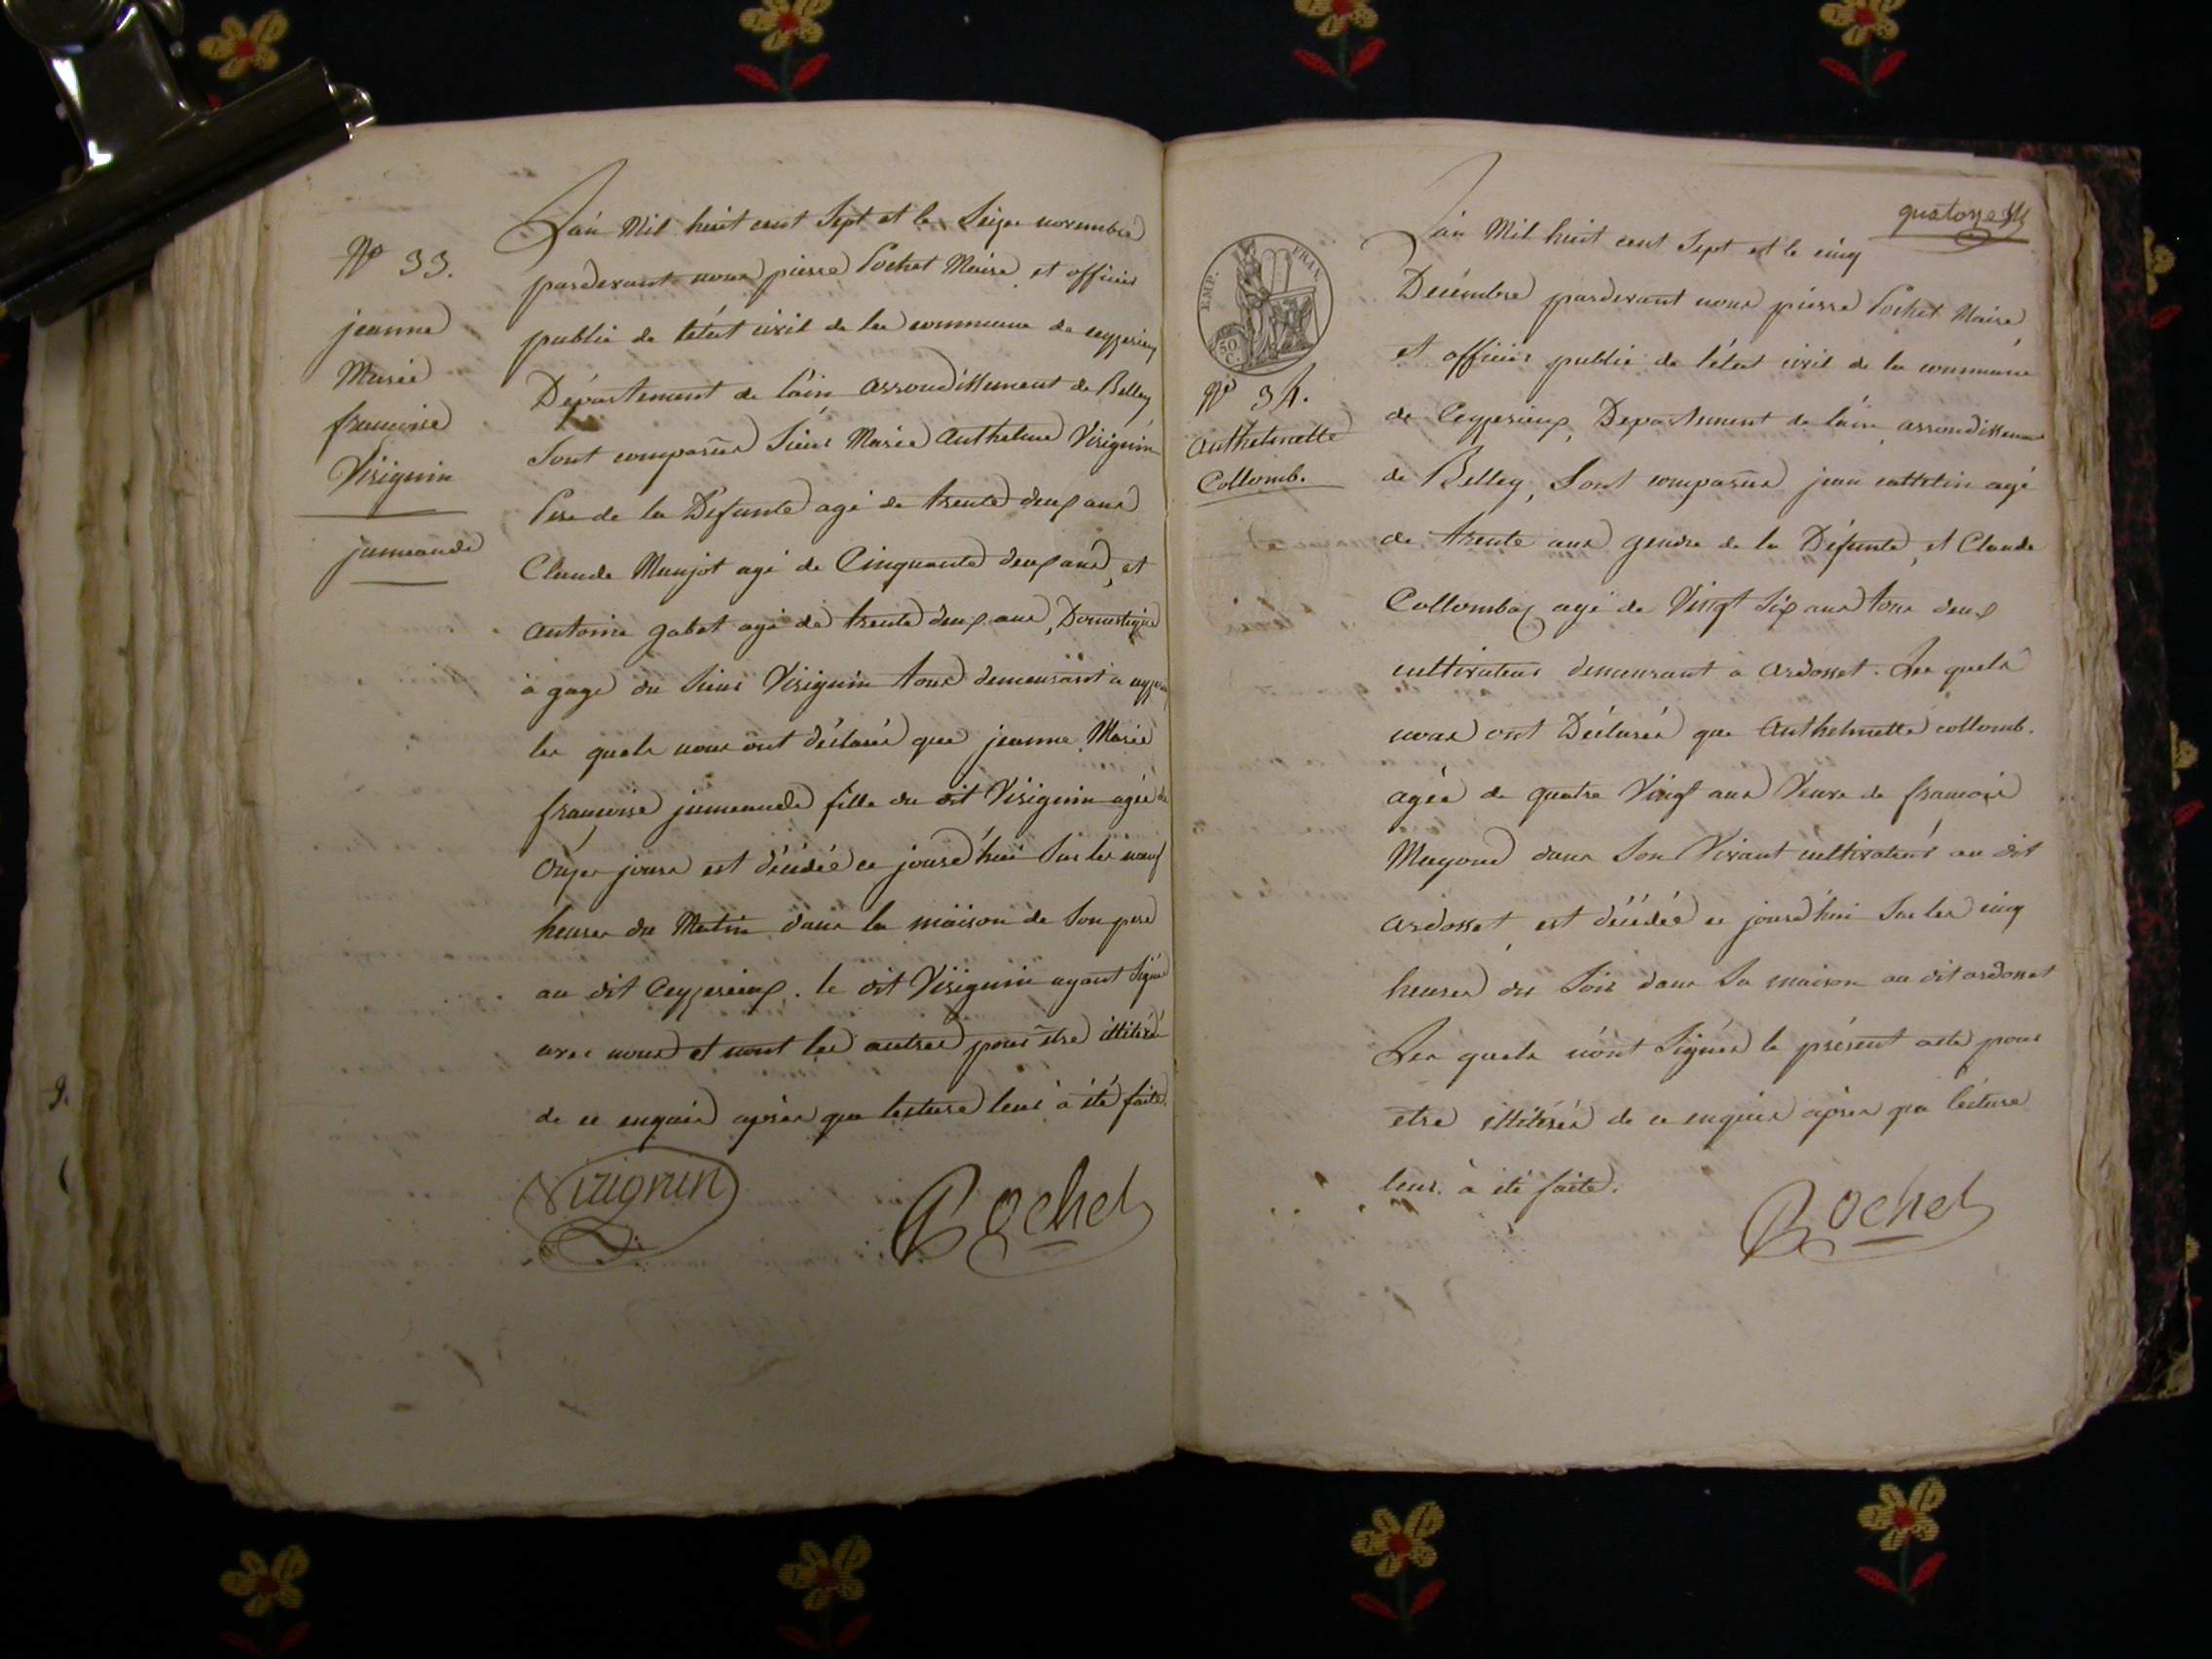 N° 33.
jeanne
Marie
françoise
Visignin
jumeaude
L'an Mil huit cent Sept et le Seize novembre
pardevant nous pierre Pochet Maire et officier
public de l'état civil de la commune de ceyzerieu
Département de l'ain arrondissement de Belley
Sont comparus Sieur Marie Anthelme Visignin
Pere de la Defunte agé de trente deux ans
Claude Manjot agé de Cinquante deux ans, et
Antoine gabet agé de trente deux ans, Domestique
à gage du Sieur Visignin tous demeurant à
les quels nous ont déclarés que jeanne Marie
françoise jumeaude fille du dit Visignin agée de
Onze jours est décédée ce jourd'hui Sur les neuf
heures du Matin dans la maison de Son pere
au dit Ceyzerieux. le dit Visignin ayant Signé
avec nous et nont les autres pour être illitéré
de ce enquis après que lecture leur à été faite.
Vizignin
Pochet
quatorze
EMP. FRAN.
50 C.
N° 34.
Anthelmette
Collomb.
L'an Mil huit cent Sept et le cinq
Décembre pardevant nous pierre Pochet Maire
et officier public de l'état civil de la commune
de Ceyzerieux, Departement de l'ain arrondissement
de Belley, Sont comparus jean cattelin agé
de trente ans gendre de la Défunte, et Claude
Collombaz agé de Vingt Six ans tous deux
cultivateurs demeurant à Ardosset. Les quels
nous ont Déclarés que Anthelmette collomb.
agée de quatre Vingt ans Veuve de françois
Mugond dans Son Vivant cultivateur au dit
ardosset est décédée ce jourd'hui Sur les cinq
heures du Soir dans Sa maison au dit ardosset
Les quels n'ont Signés le présent acte pour
etre illitérés de ce enquis après que lecture
leur à été faite.
Pochet